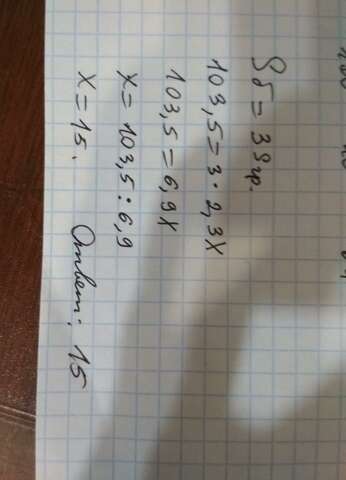 Sб = 3 Sгр.
103,5 = 3 · 2,3X
103,5 = 6,9X
X = 103,5 : 6,9
X = 15. Ответ: 15